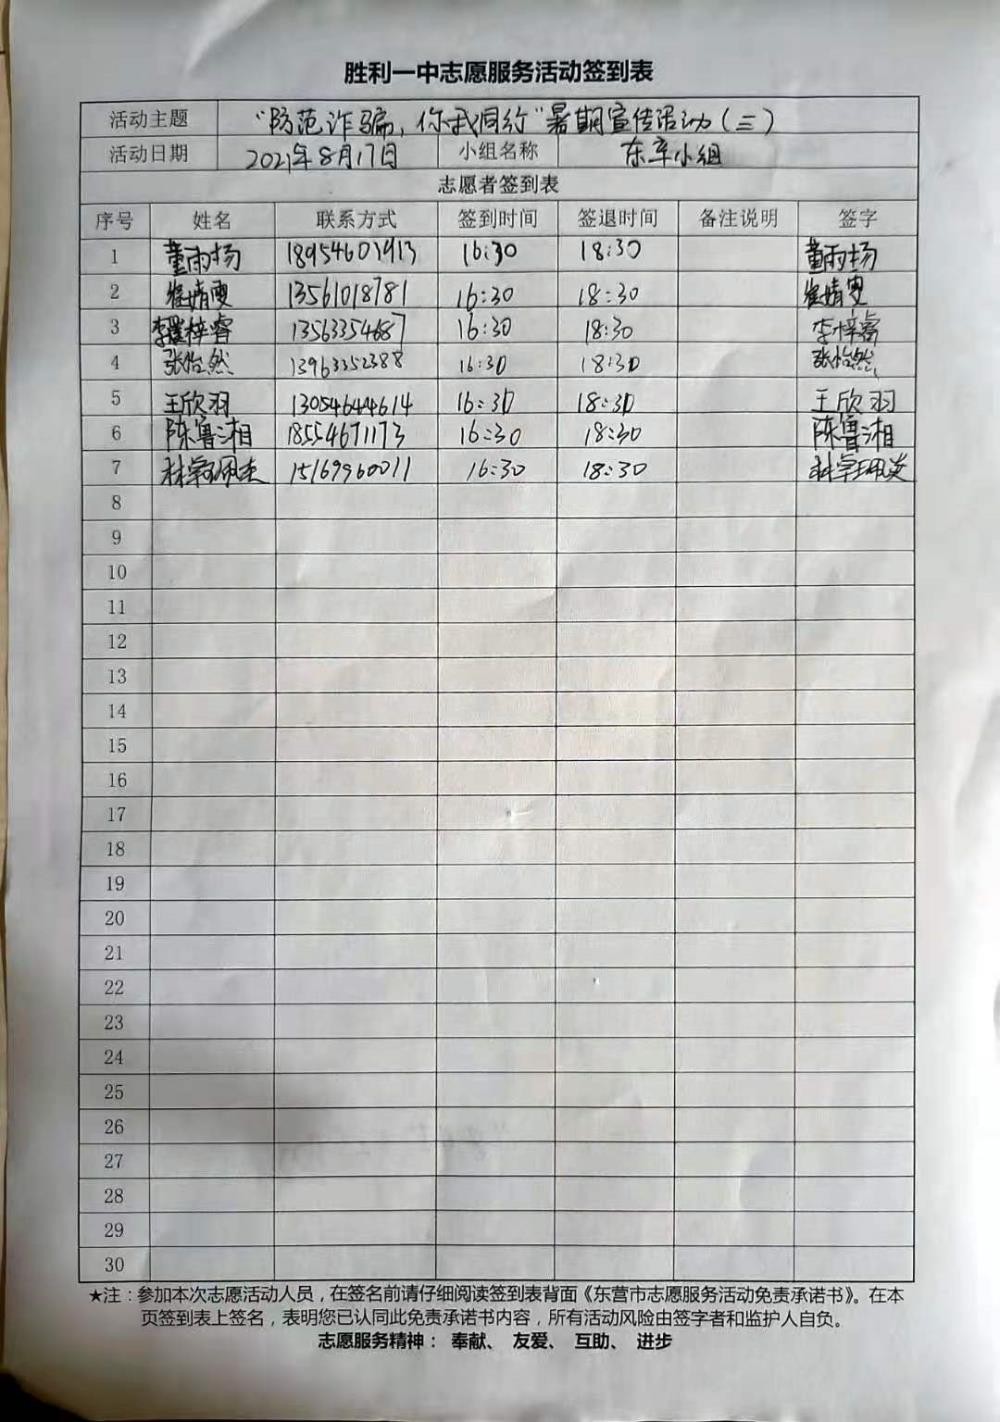 胜利一中志愿服务活动签到表
活动主题 “防范诈骗，你我同行”暑期宣传活动（三）
活动日期 2021年8月17日 小组名称 东辛小组
志愿者签到表
序号 姓名 联系方式 签到时间 签退时间 备注说明 签字
1 董雨杨 16:30 18:30 董雨杨
2 崔婧雯 13561018781 16:30 18:30 崔婧雯
3 李梓睿 13563354687 16:30 18:30 李梓睿
4 张怡然 13963352388 16:30 18:30 张怡然
5 王欣羽 13054644614 16:30 18:30 王欣羽
6 陈鲁湘 18554671173 16:30 18:30 陈鲁湘
7 15169960011 16:30 18:30
8
9
10
11
12
13
14
15
16
17
18
19
20
21
22
23
24
25
26
27
28
29
30
★注：参加本次志愿活动人员，在签名前请仔细阅读签到表背面《东营市志愿服务活动免责承诺书》。在本
页签到表上签名，表明您已认同此免责承诺书内容，所有活动风险由签字者和监护人自负。
志愿服务精神： 奉献、 友爱、 互助、 进步